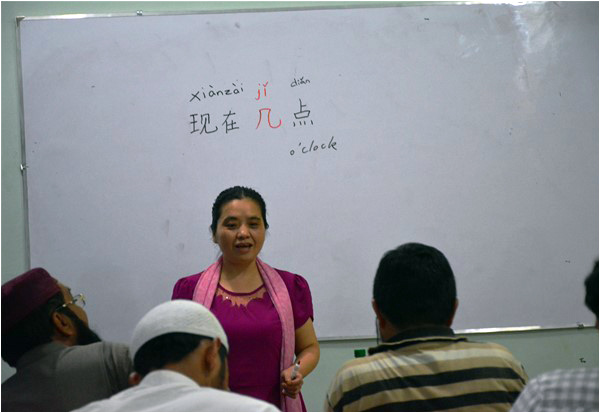 xiànzài jǐ diǎn
现在几点
o'clock